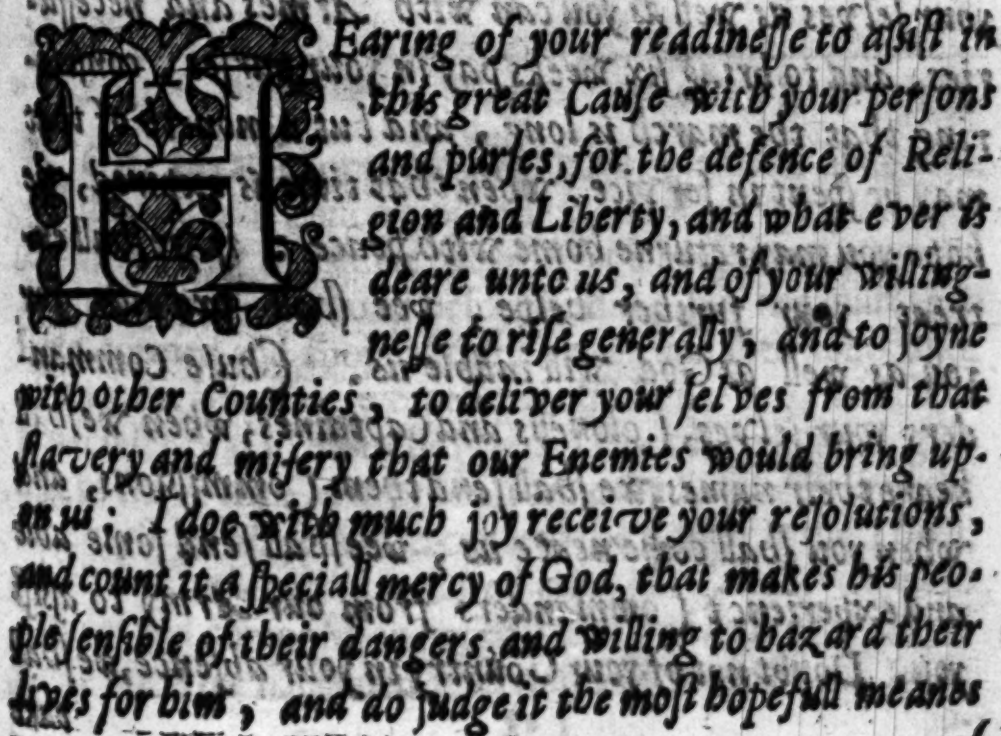 HEaring of your readinesse to assist in
this great Cause with your persons
and purses, for the defence of Reli-
gion and Liberty, and what ever is
deare unto us, and of your willing-
nesse to rise generally, and to joyne
with other Counties, to deliver your selves from that
slavery and misery that our Enemies would bring up-
on us: I doe with much joy receive your resolutions,
and count it a speciall mercy of God, that makes his peo-
ple sensible of their dangers, and willing to hazard their
lives for him, and do judge it the most hopefull meanes